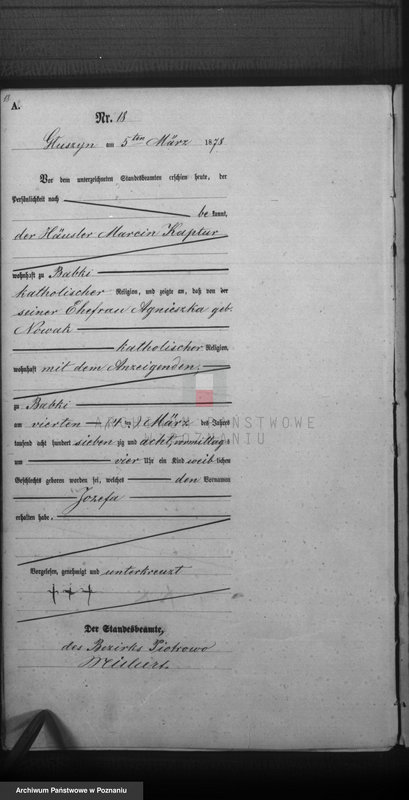 18
A.
Nr. 18
Gluszyn am 5ten März 1878
Vor dem unterzeichneten Standesbeamten erschien heute, der
Persönlichkeit nach
be kannt,
der Häusler Marcin Kaptur
wohnhaft zu Babki
katholischer Religion, und zeigte an, daß von der
seiner Ehefrau Agnieszka geb.
Nowak
katholischer Religion,
wohnhaft mit dem Anzeigenden,
zu Babki
am vierten (4.) März des Jahres
tausend acht hundert sieben zig und acht, vormittags
um vier Uhr ein Kind weib lichen
Geschlechts geboren worden sei, welches den Vornamen
Jozefa
erhalten habe.
Vorgelesen, genehmigt und unterkreuzt
+ + +
Der Standesbeamte,
des Bezirks Piotrowo
ARCHIWUM PAŃSTWOWE
W POZNANIU
Archiwum Państwowe w Poznaniu